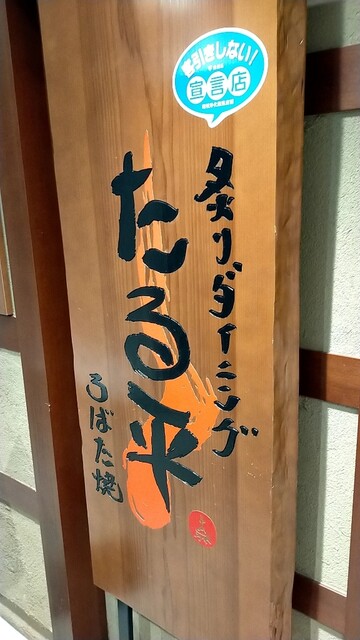 客引きしない!
宣言店
炙りダイニング
たる平
ろばた焼